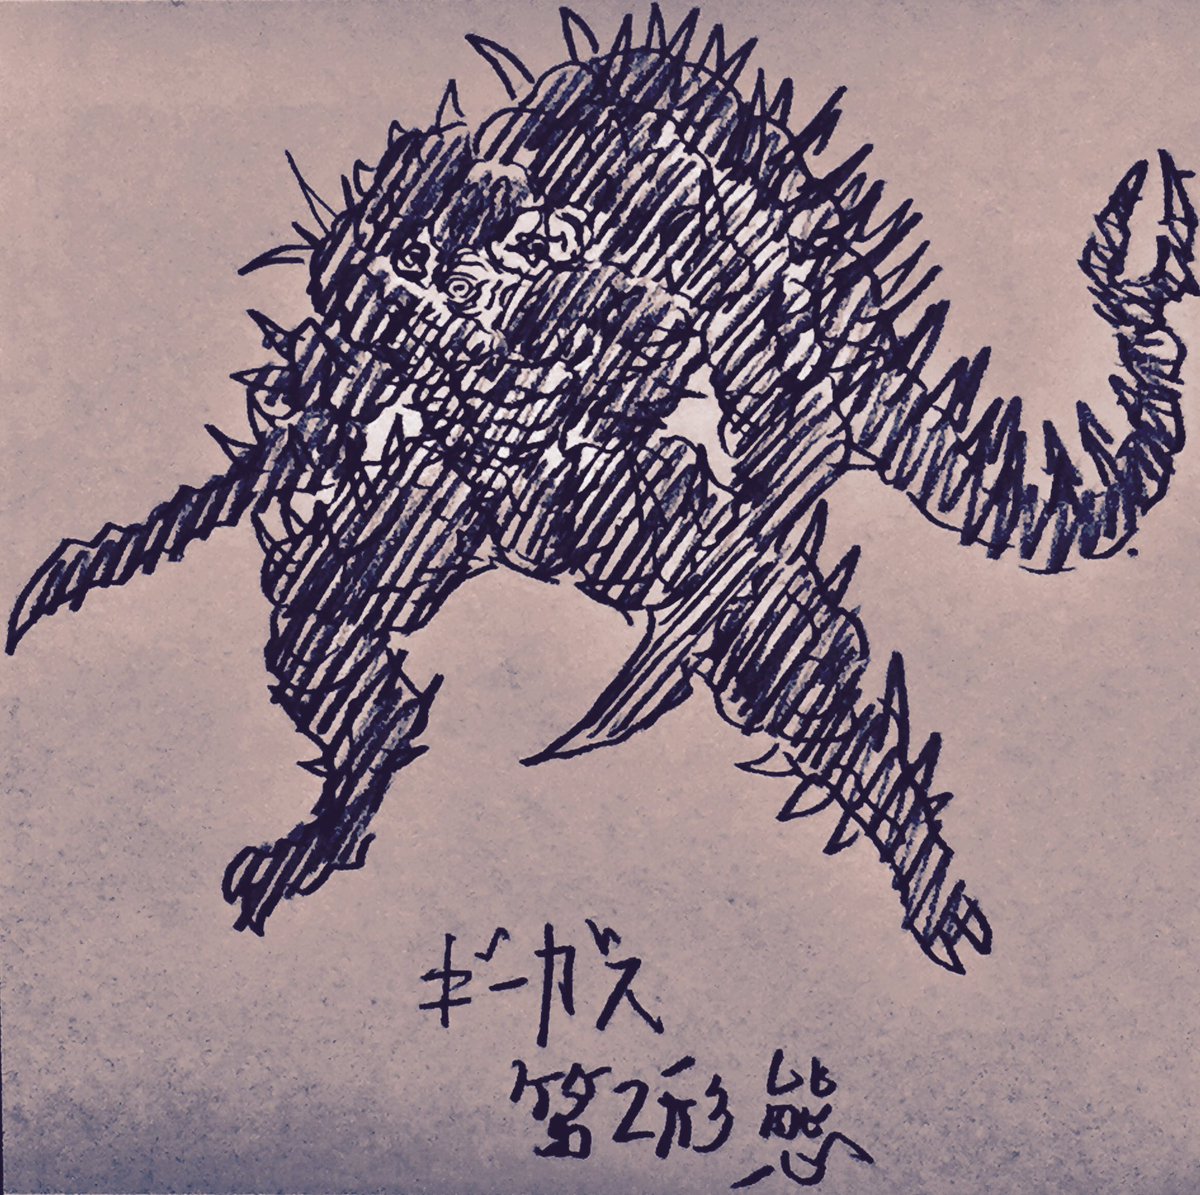 ギーガス
第2形態